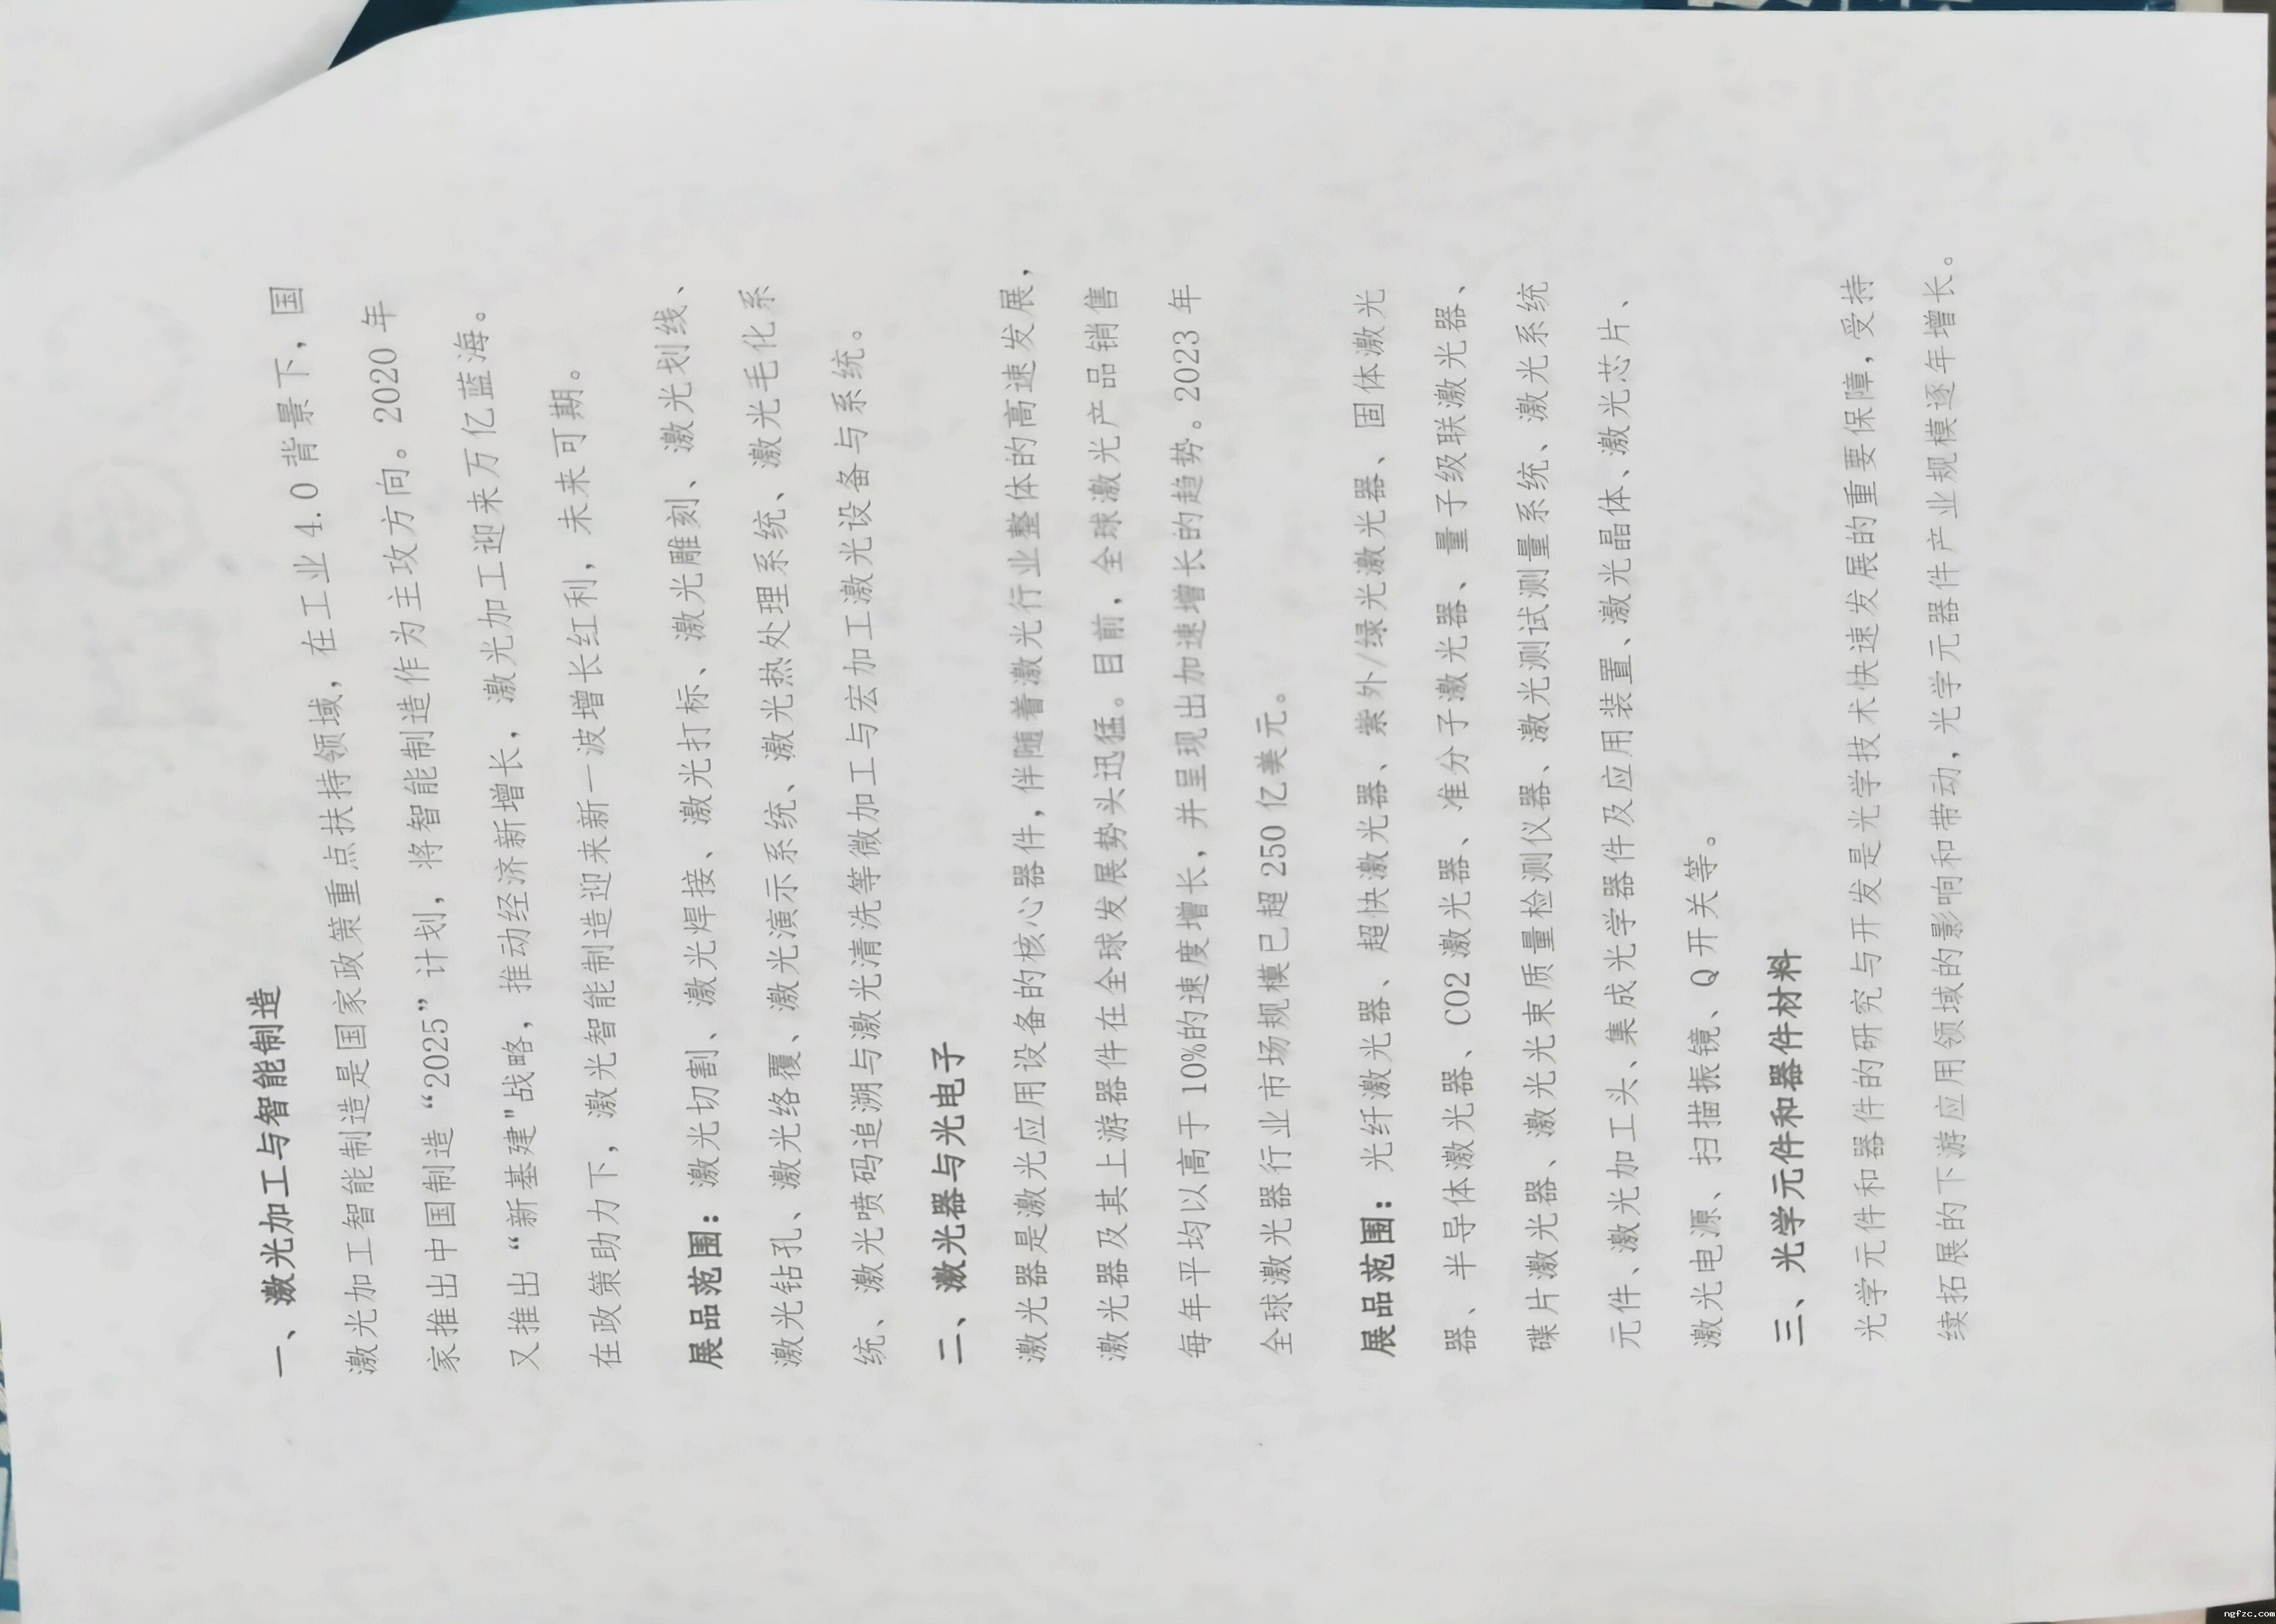 一、激光加工与智能制造
激光加工智能制造是国家政策重点扶持领域，在工业 4.0 背景下，国
家推出中国制造“2025”计划，将智能制造作为主攻方向。2020 年
又推出“新基建"战略，推动经济新增长，激光加工迎来万亿蓝海。
在政策助力下，激光智能制造迎来新一波增长红利，未来可期。
展品范围：激光切割、激光焊接、激光打标、激光雕刻、激光划线、
激光钻孔、激光络覆、激光演示系统、激光热处理系统、激光毛化系
统、激光喷码追溯与激光清洗等微加工与宏加工激光设备与系统。
二、激光器与光电子
激光器是激光应用设备的核心器件，伴随着激光行业整体的高速发展，
激光器及其上游器件在全球发展势头迅猛。目前，全球激光产品销售
每年平均以高于 10%的速度增长，并呈现出加速增长的趋势。2023 年
全球激光器行业市场规模已超 250 亿美元。
展品范围：光纤激光器、超快激光器、紫外/绿光激光器、固体激光
器、半导体激光器、CO2 激光器、准分子激光器、量子级联激光器、
碟片激光器、激光光束质量检测仪器、激光测试测量系统、激光系统
元件、激光加工头、集成光学器件及应用装置、激光晶体、激光芯片、
激光电源、扫描振镜、Q 开关等。
三、光学元件和器件材料
光学元件和器件的研究与开发是光学技术快速发展的重要保障，受持
续拓展的下游应用领域的影响和带动，光学元器件产业规模逐年增长。
ngfzc.com